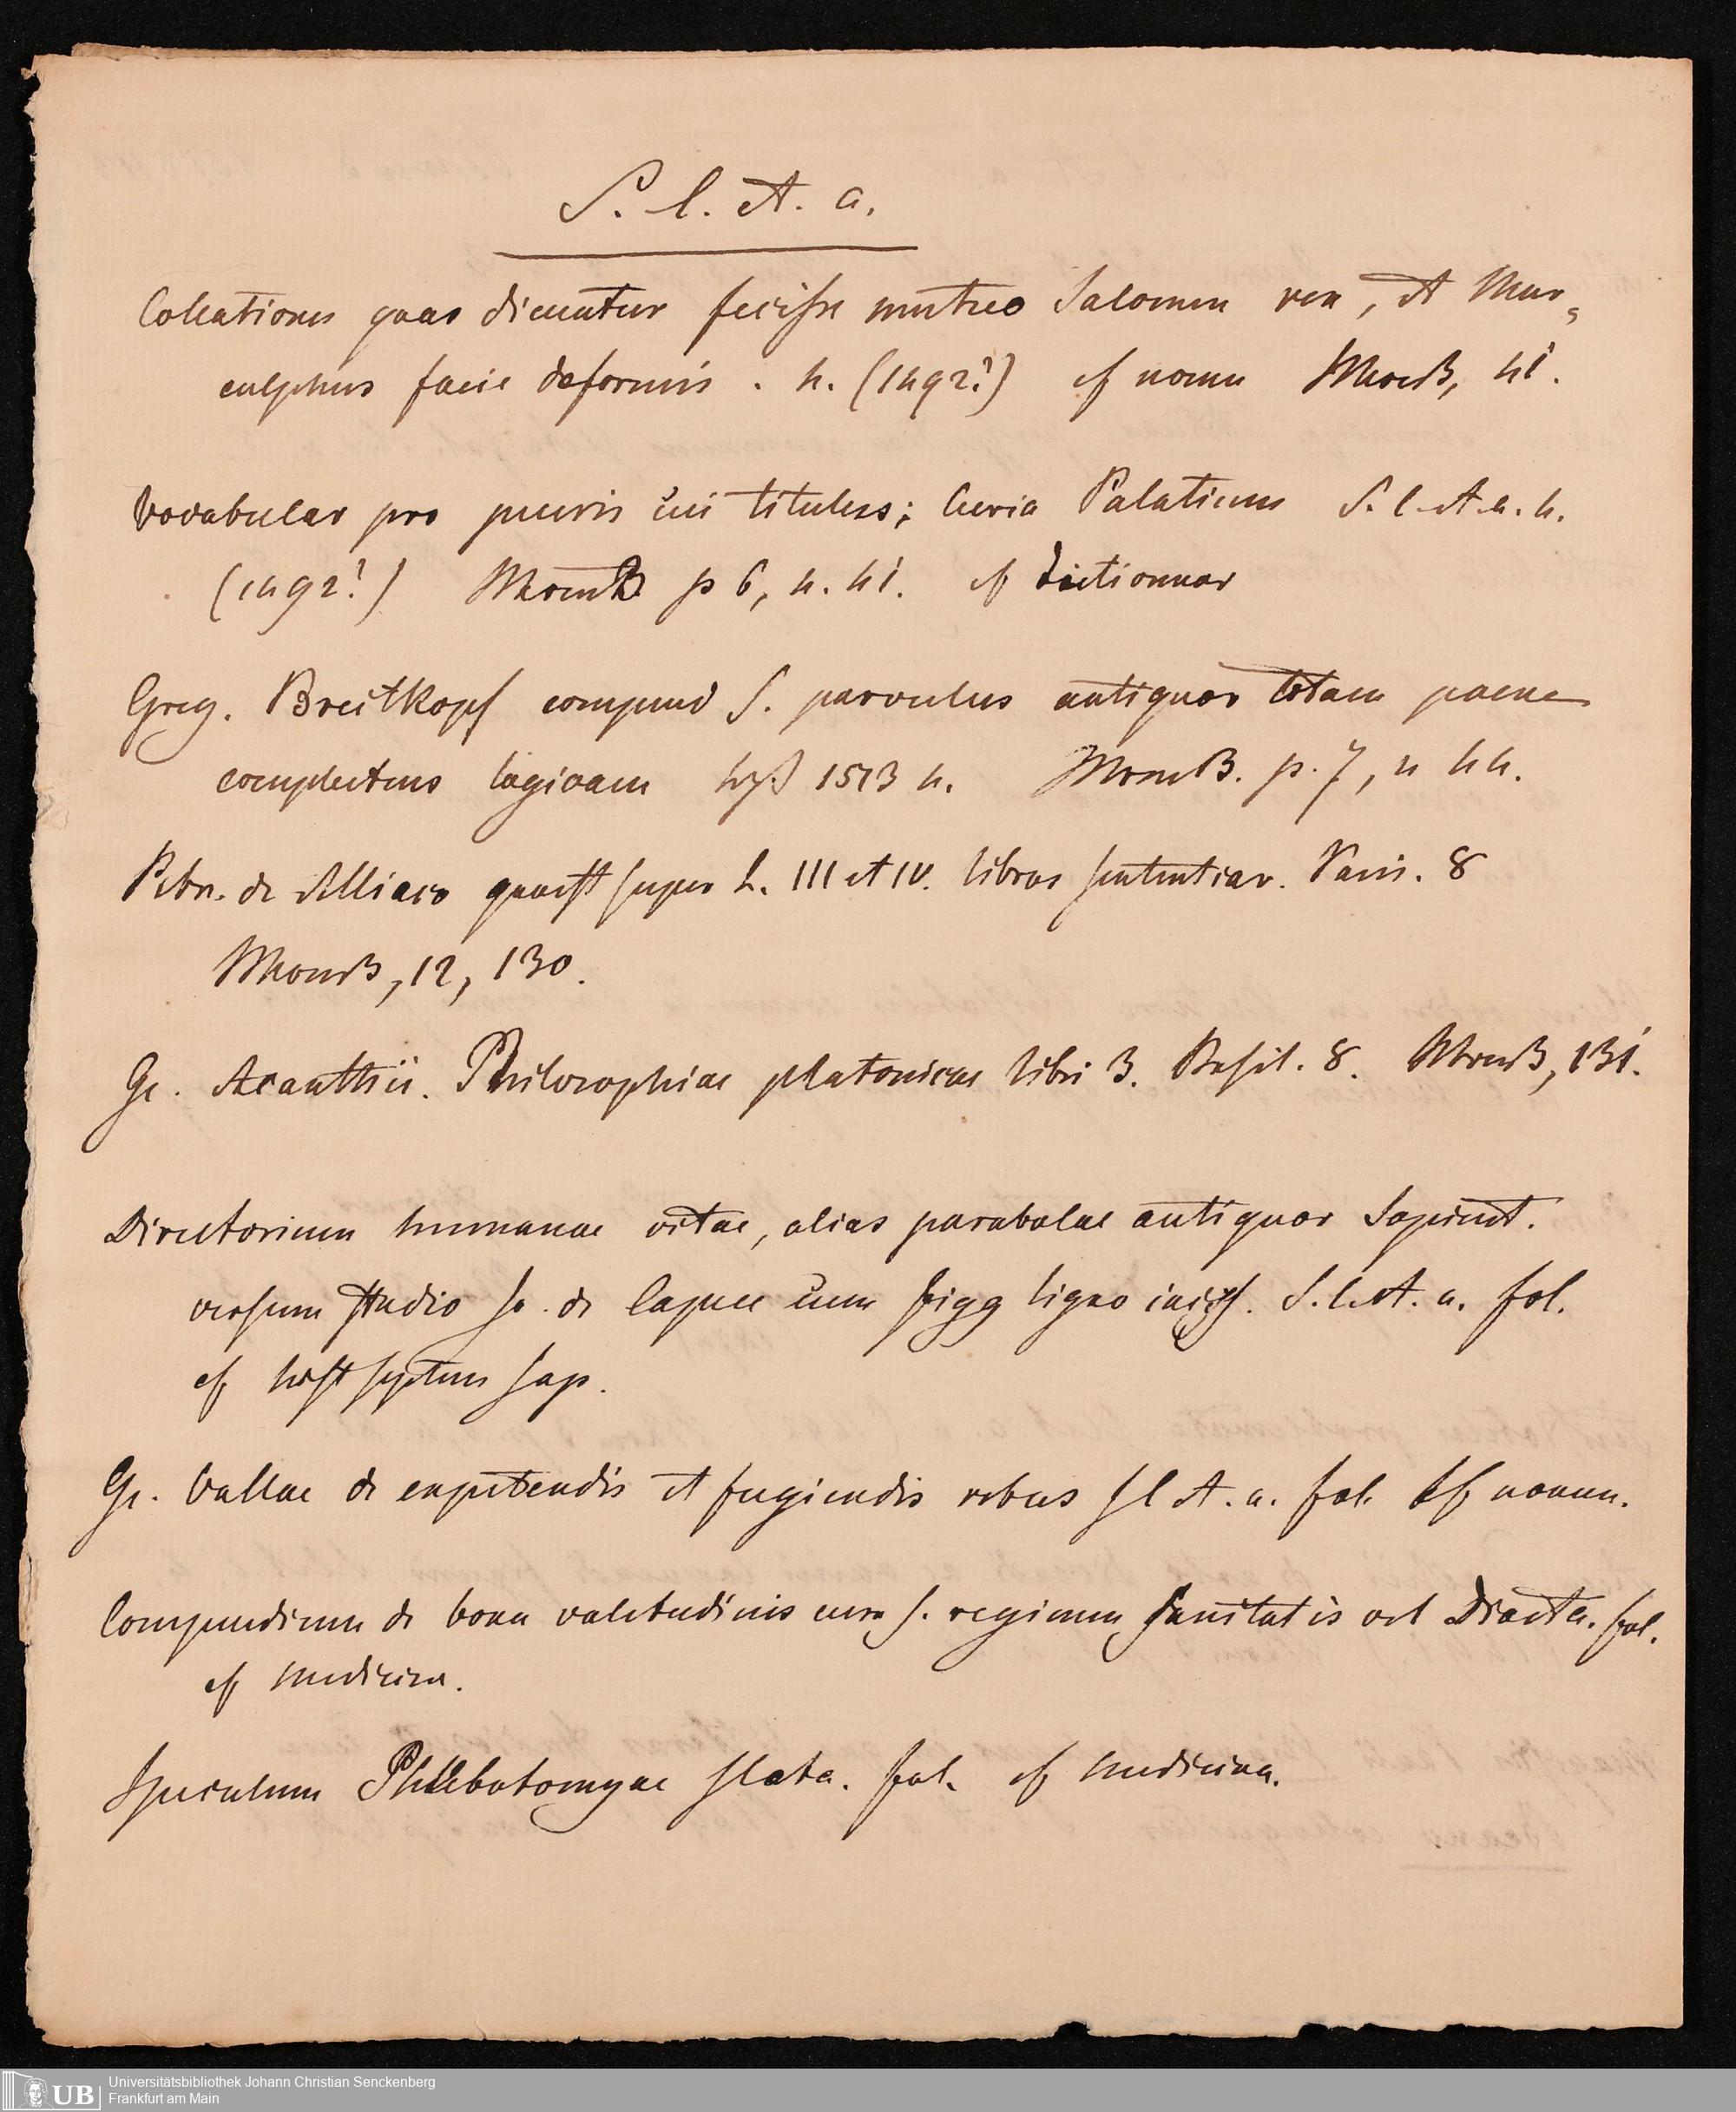 S. l. et. a.
Collationes quas dicuntur fecisse mutuo Salomon rex, et Mar-
culphus facie deformis. 4. (1492?) cf nomen 41.
Vocabular pro pueris cui titulus; Curia Palatium S. l. et. a. 4.
(1492?) p 6, n. 41. cf Dictionnar
Greg. Breitkopf compend S. parvulus antiquor totam paene
complectens logicam 1513 4. p. 7, n 44.
Petr. de Alliaco quaest super L. III et IV. libros sententiar. Paris. 8
12, 130.
Ge. Acanthii. Philosophiae platonicae libri 3. Basil. 8. 131.
Directorium humanae vitae, alias parabolae antiquor Sapient.
versum studio Jo. de Capua cum figg ligno incis. S. l. et. a. fol.
cf hist septem sap.
Ge. Vallae de expetendis et fugiendis rebus s l et. a. fol. cf nomen.
Compendium de bona valetudinis cura s. regimen sanitatis vel Diaeta. fol.
cf Medicina.
Speculum Phlebotomyae sleta. fol. cf Medicina.
UB
Universitätsbibliothek Johann Christian Senckenberg
Frankfurt am Main